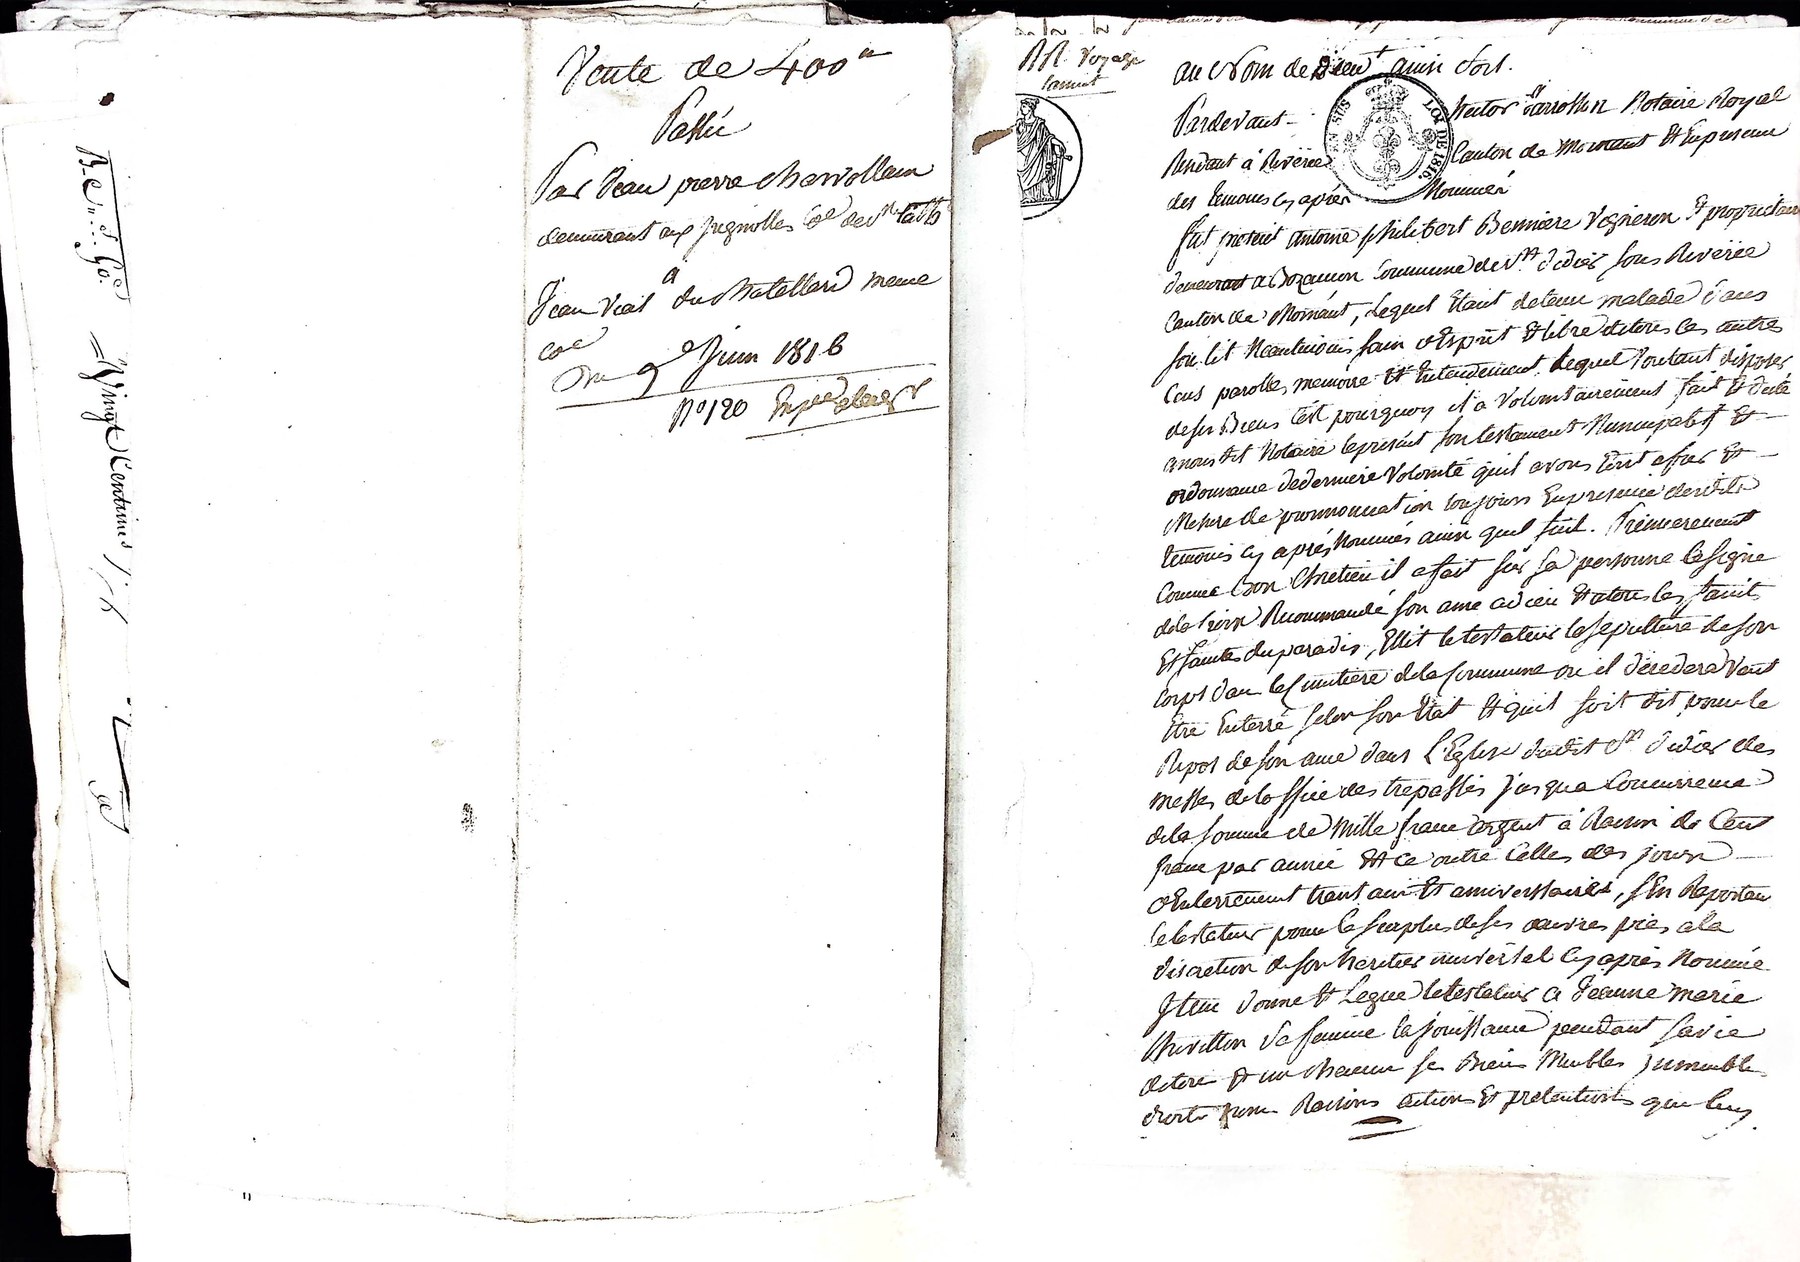 Vente de 400 #
Passé
Par Jean pierre
demeurant aux Cne de St
a
Jean Vial du Chatellard meme
cne
Du 9e Juin 1816
No 120 Expée
Vingt Centimes
au Nom de Dieu ainsi soit.
Pardevant Notaire Royal
Residant à Riverie Canton de Mornant Et En presence
des temoins cy après Nommés
fut present antoine philibert Bernniere Vigneron Et proprietaire
demeurant a Commune de St didier sous Riverie
Canton de Mornant, Lequel Etant detenu malade dans
son lit Neantmoins sain d'Esprit Et libre de tous ces autres
Cens parolle, memoire Et Entendement lequel Voulant disposer
de ses Biens C'est pourquoy il a Volontairement fait Et dicté
a nous dit Notaire le present son testament Nuncupatif Et
ordonnance de derniere Volonté quil avons Ecrit affur Et
Mesure de prononciation toujours En presence desdits
temoins cy après Nommés ainsi quil suit. Premierement
Comme Bon Chretien il a fait sur sa personne le signe
de la Croix Recommandé son ame a dieu Et a tous les saints
Et saintes du paradis, Ellit le testateur la sepulture de son
corps dans le Cimitiere de la Commune ou il decedera Veut
Etre Enterré selon son Etat Et quil soit dit pour le
Repos de son ame dans L'Eglise dudit St didier des
messes de l'office des trepassés jusqua Concurrence
de la somme de Mille franc argent à Raison de Cent
franc par année Et ce outre Celles des jours
d'Enterrement trentain Et anniverssaires, s'En Raportan
le testateur pour le surplus de ses œuvres pies a la
discretion de son heritier universel Cy après Nommé
Item donne Et Legue le testateur a Jeanne marie
sa femme la jouissance pendant sa vie
de tous Et un chacun ses Biens Meubles Jmmeubles
droits Noms Raisons actions Et pretentions que luy